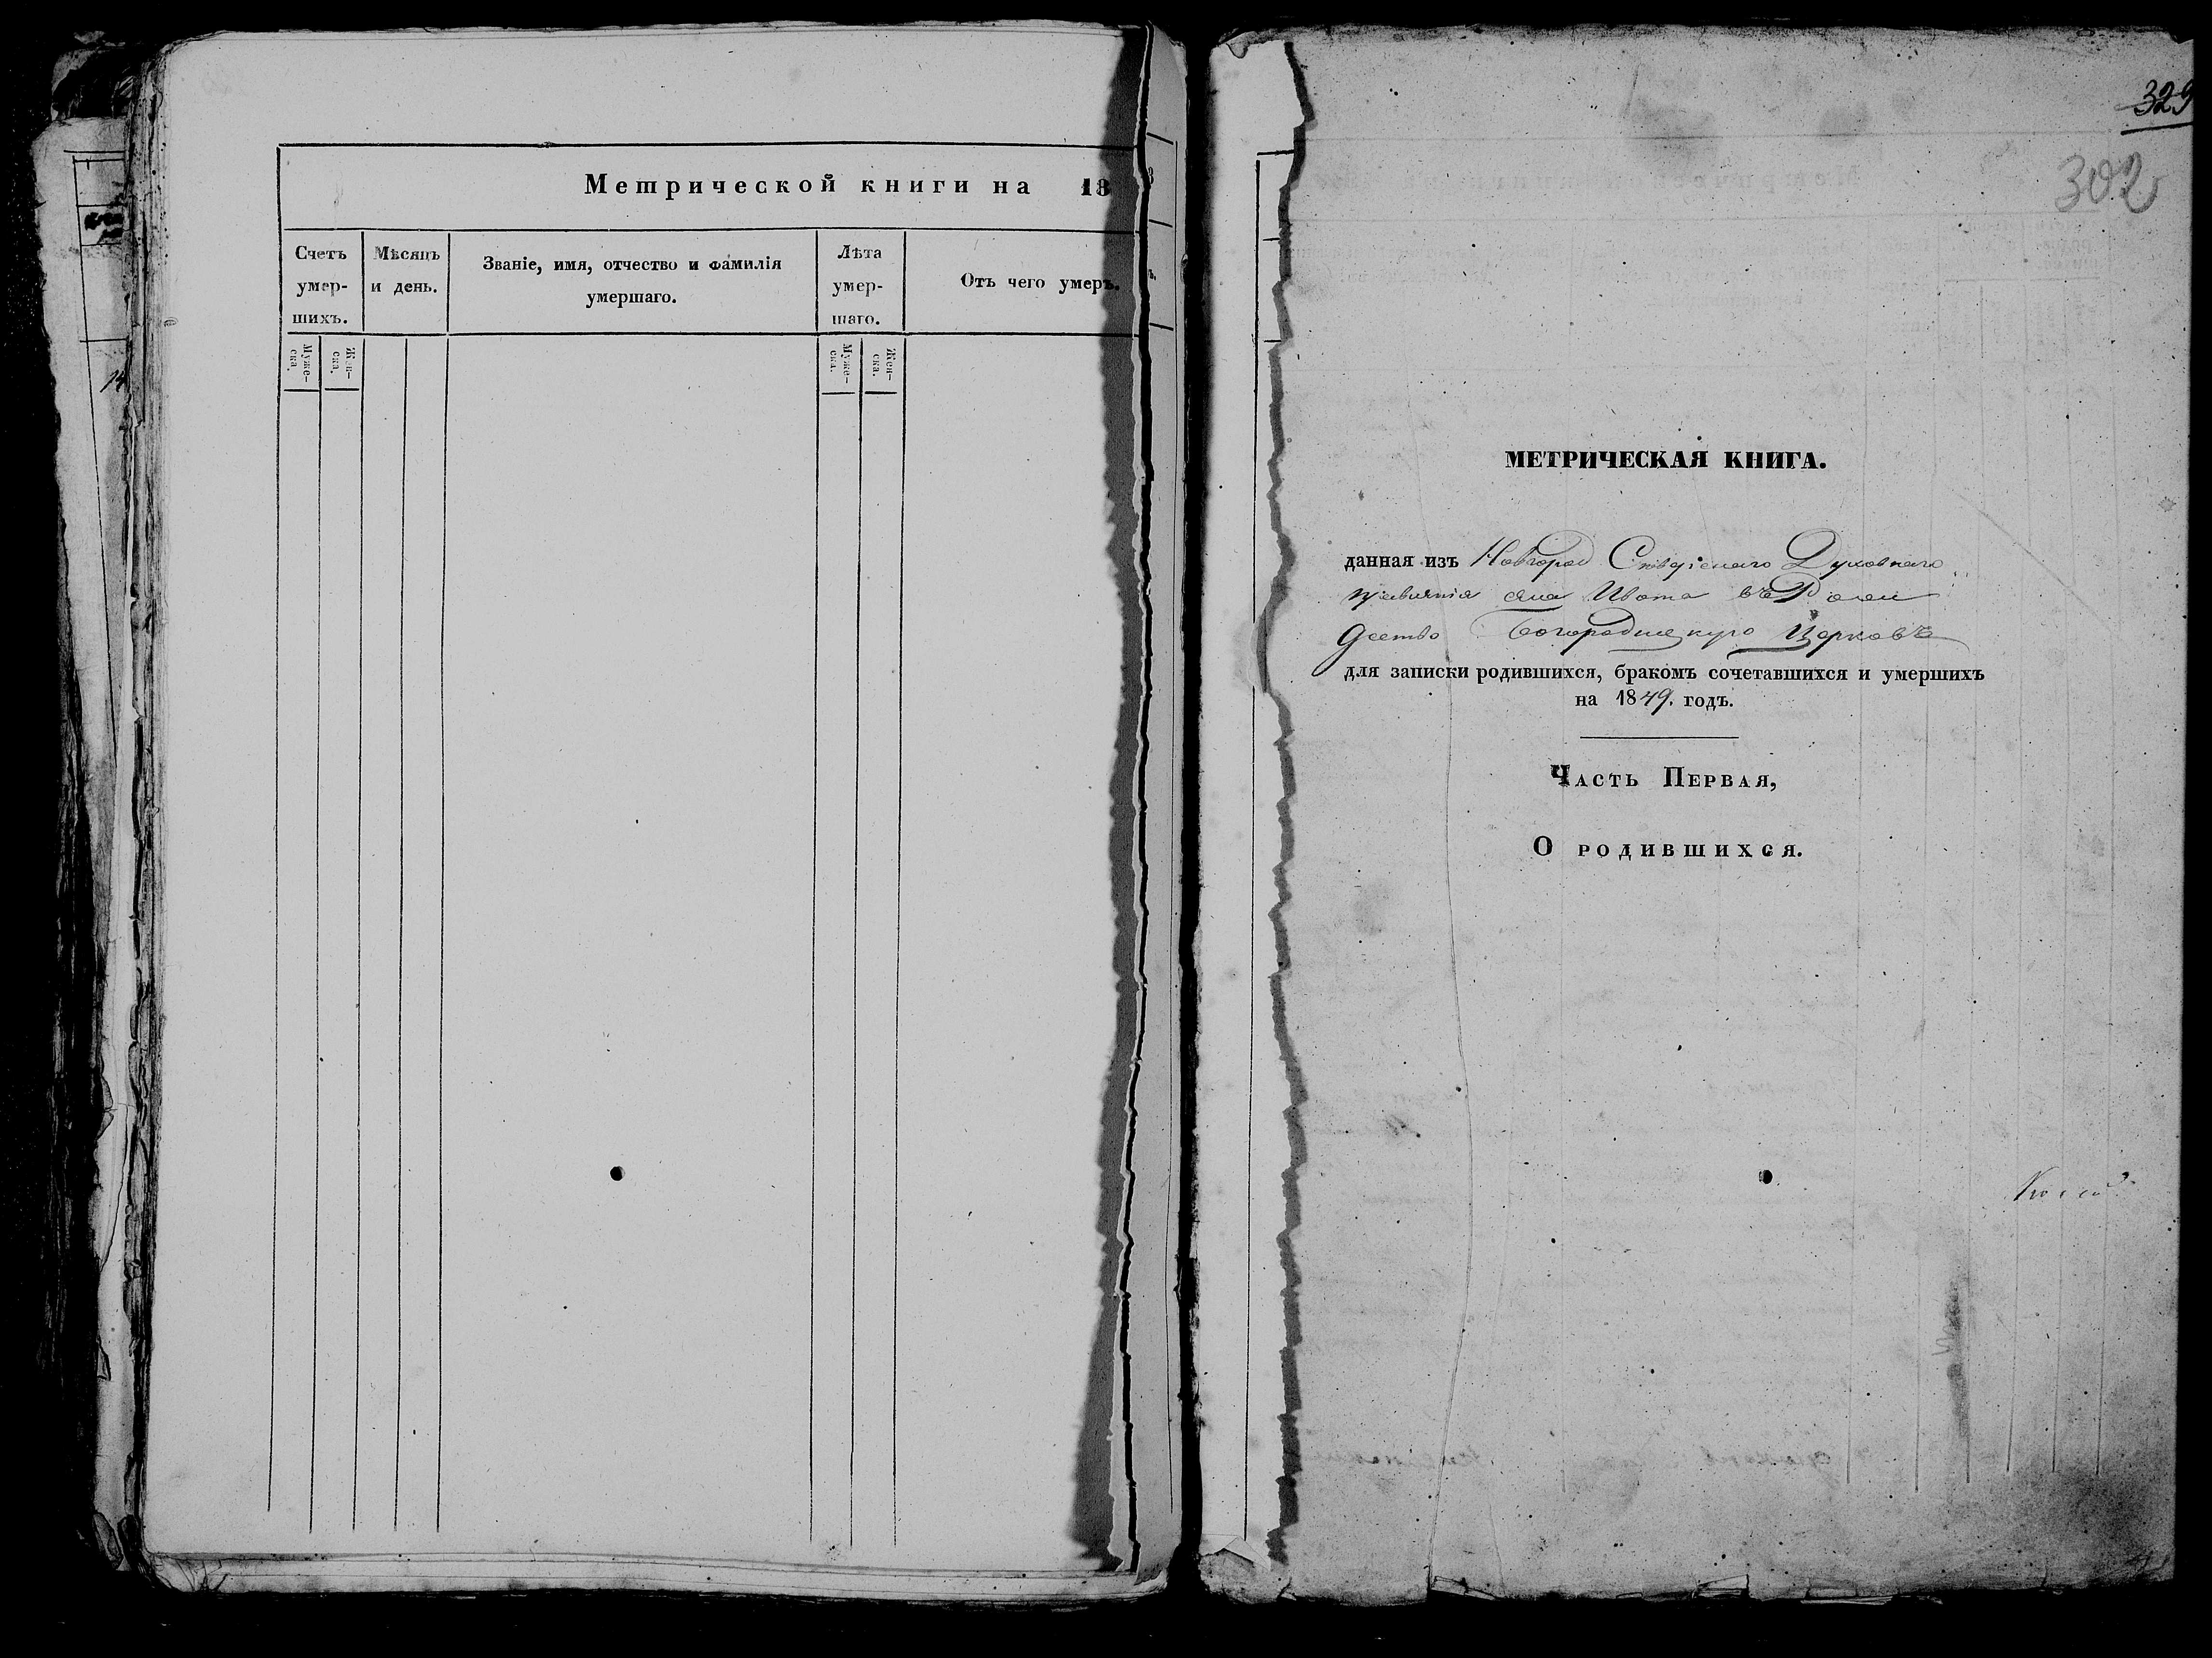 Метрической книги на 18
Счетъ умер- шихъ.
Мѣсяцъ и день.
Званіе, имя, отчество и фамилія умершаго.
Лѣта умер- шаго.
Отъ чего умеръ.
Муже- ска.
Жен- ска.
Муже- ска.
Жен- ска.
329
302
МЕТРИЧЕСКАЯ КНИГА.
данная изъ Новгород Сѣверскаго Духовнаго
правленія села Ивота въ Рож
дество Богородицкую Церковь
для записки родившихся, бракомъ сочетавшихся и умершихъ
на 1849. годъ.
Часть Первая,
О родившихся.